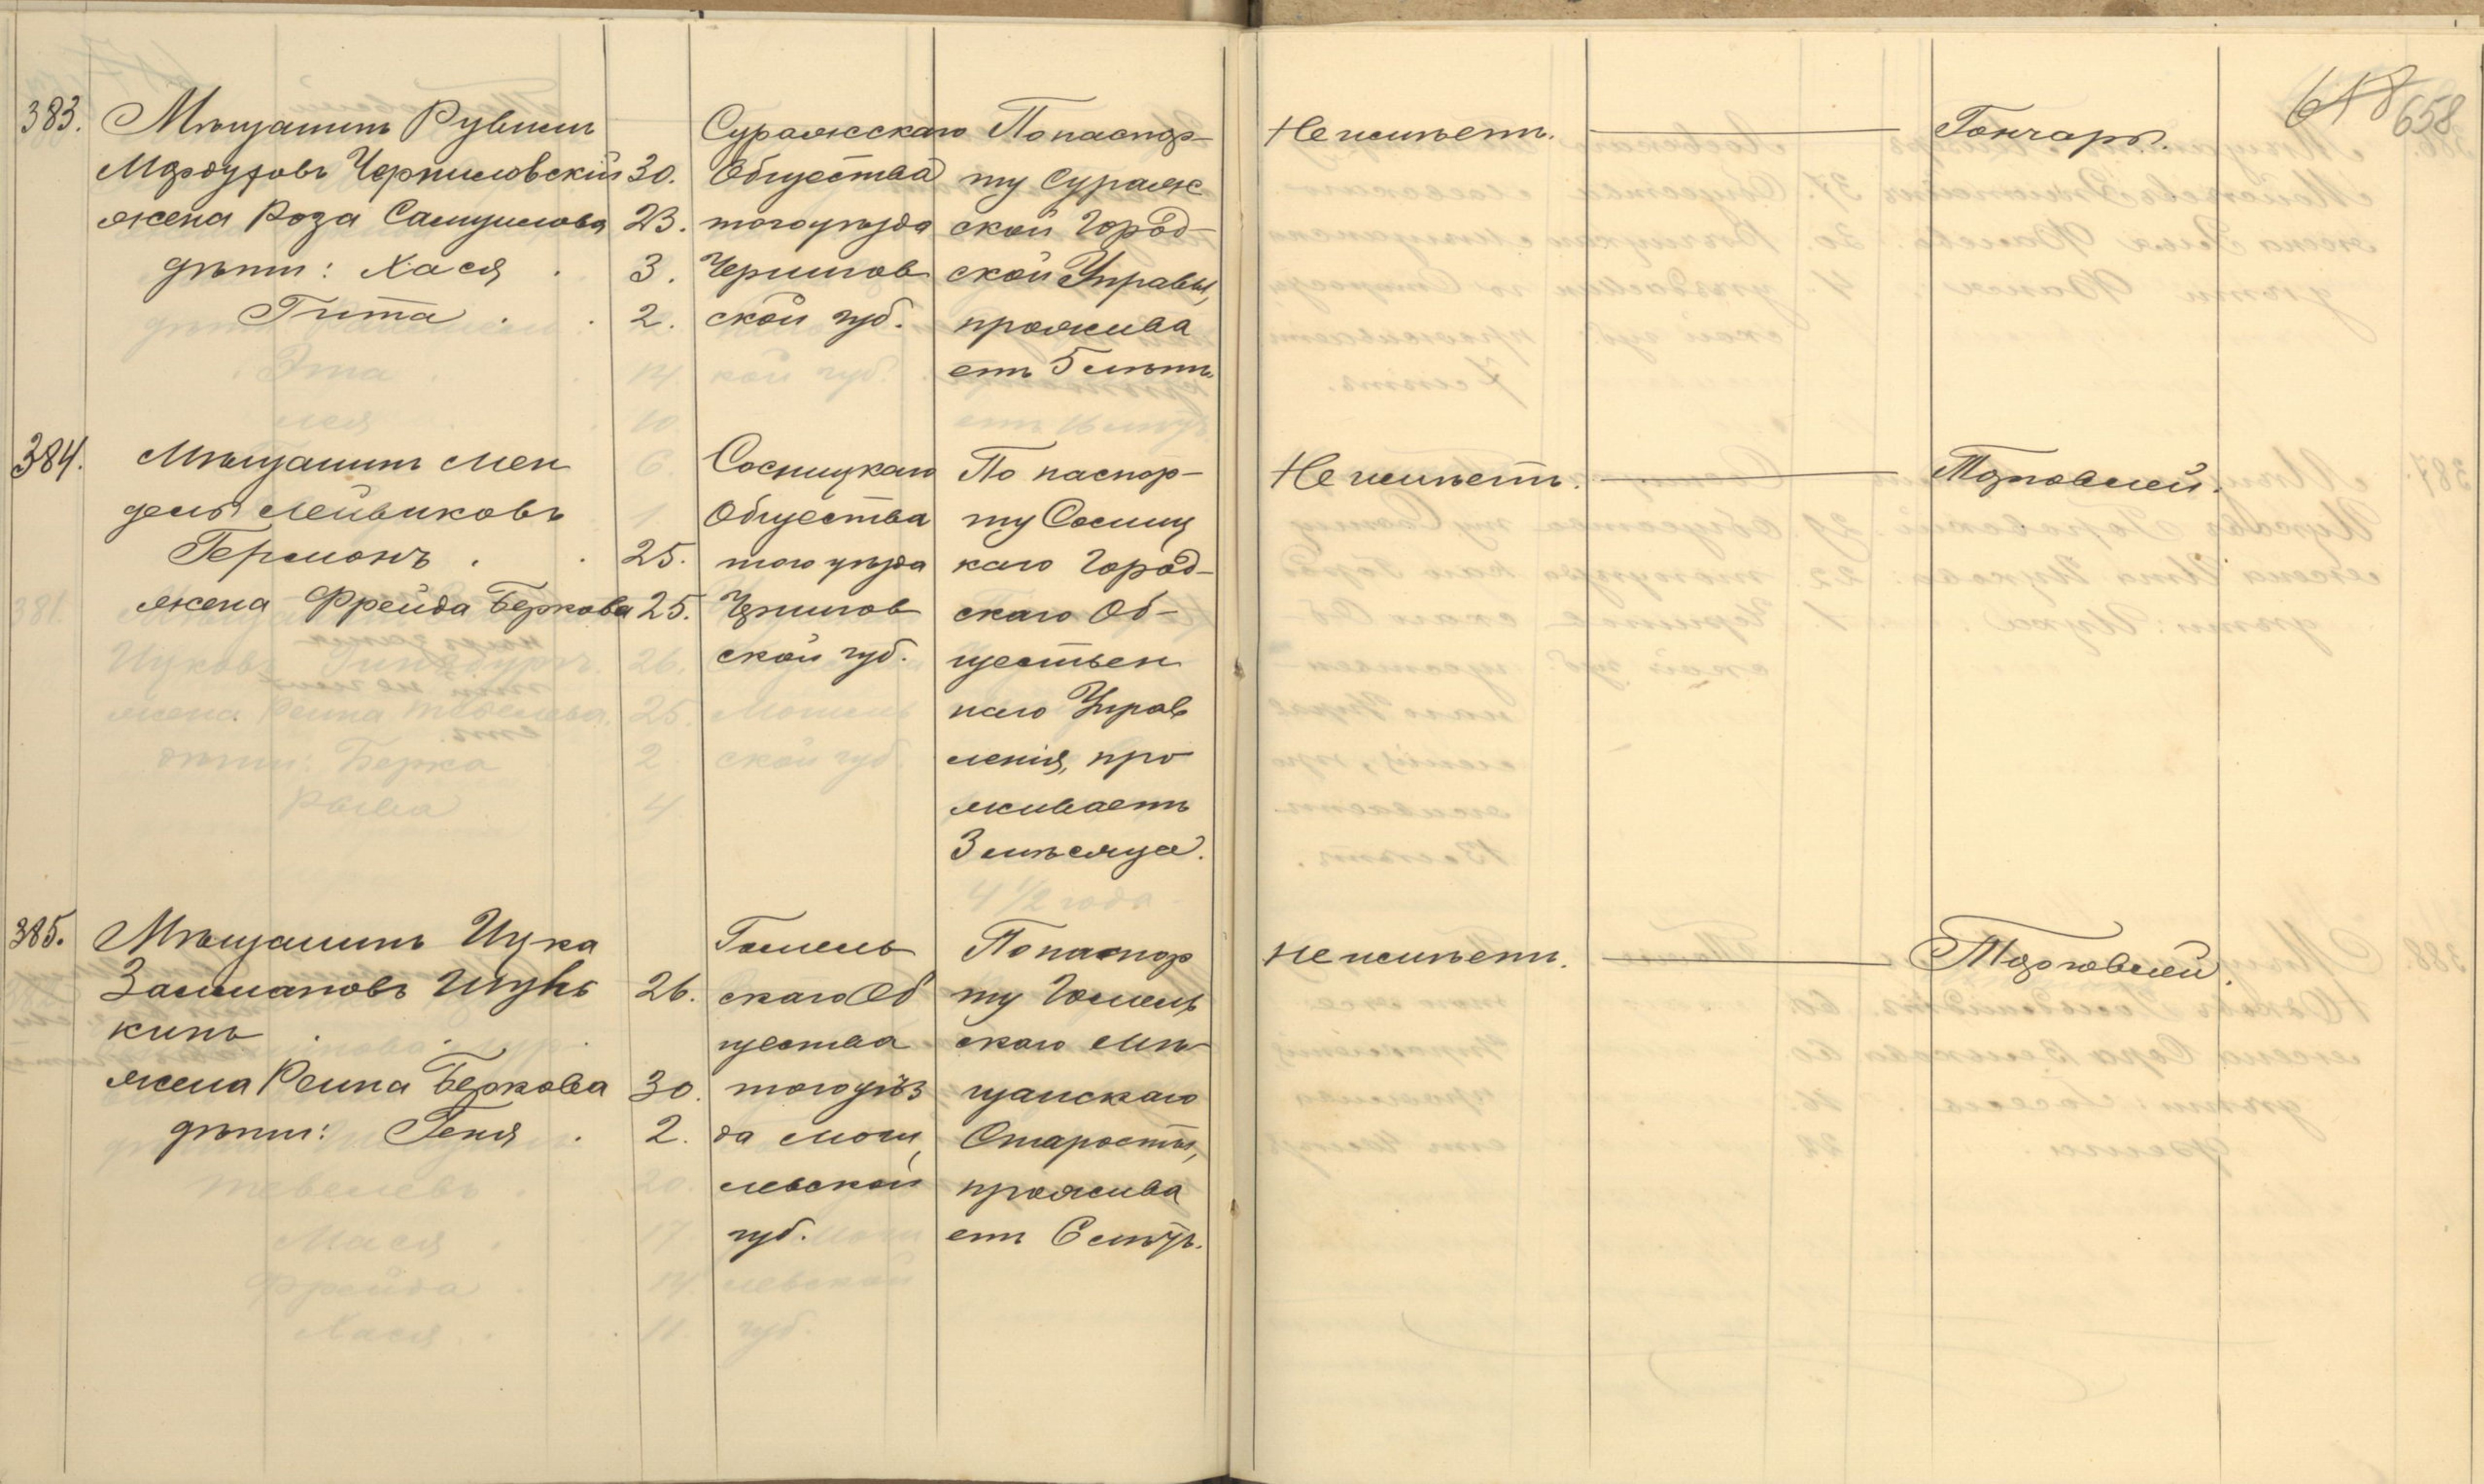 658
383. Мѣщанинъ Рувинъ
Мордуховъ Черниловскій 30.
жена Роза Самуилова 23.
дѣти: Хася . 3.
Гита . . 2.
Суражскаго
Общества
того уѣзда
Чернигов
ской губ.
По паспор-
ту Сураж
ской Город-
ской Управы,
прожива
етъ 5 лѣтъ.
Не имѣетъ.
Гончаръ.
384. Мѣщанинъ Мен
дель Лейвиковъ
Гермонъ . . 25.
жена Фрейда Беркова 25.
Сосницкаго
Общества
того уѣзда
Чернигов
ской губ.
По паспор-
ту Сосниц
каго Город-
скаго Об-
ществен
наго Управ
ленія, про
живаетъ
3 мѣсяца.
Не имѣетъ.
Торговлей.
385. Мѣщанинъ Ицка
Залмановъ 26.
кинъ . . .
жена Рейна Беркова 30.
дѣти: Геня . 2.
Гомель
скаго Об
щества
того уѣз
да Моги
левской
губ.
По паспор
ту Гомель
скаго Мѣ
щанскаго
Старосты,
прожива
етъ 6 лѣтъ.
Не имѣетъ.
Торговлей.